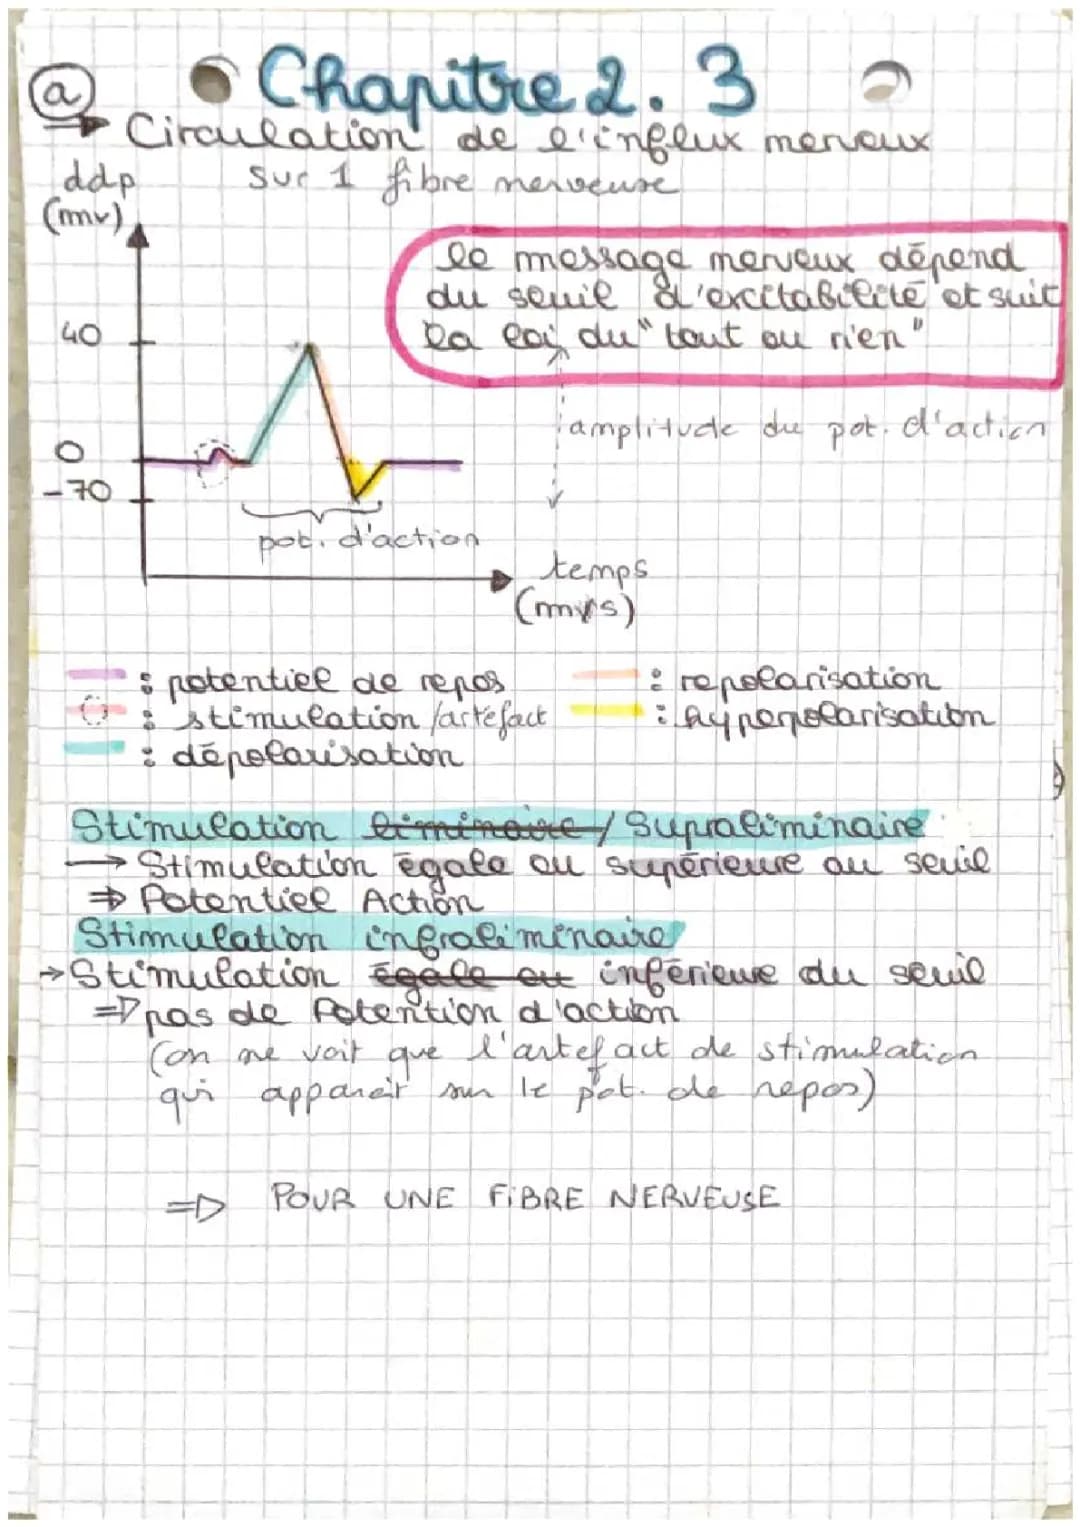 a
Chapitre 2.3
→ Circulation de l'influx nerveux
sur 1 fibre nerveuse
ddp
(mv)
le message nerveux dépend
du seuil d'excitabilité et suit
la loi du "tout ou rien"
40
amplitude du pot. d'action
0
-70
pot. d'action
temps
(ms)
: potentiel de repos
: stimulation/artefact
: dépolarisation
: repolarisation
: hyperpolarisation
Stimulation liminaire / Supraliminaire
→ Stimulation égale ou supérieure au seuil
⇒ Potentiel Action
Stimulation infraliminaire
→ Stimulation égale ou inférieure du seuil
⇒ pas de Potention d'action
(on ne voit que l'artefact de stimulation
qui apparait sur le pot. de repos)
⇒ POUR UNE FIBRE NERVEUSE